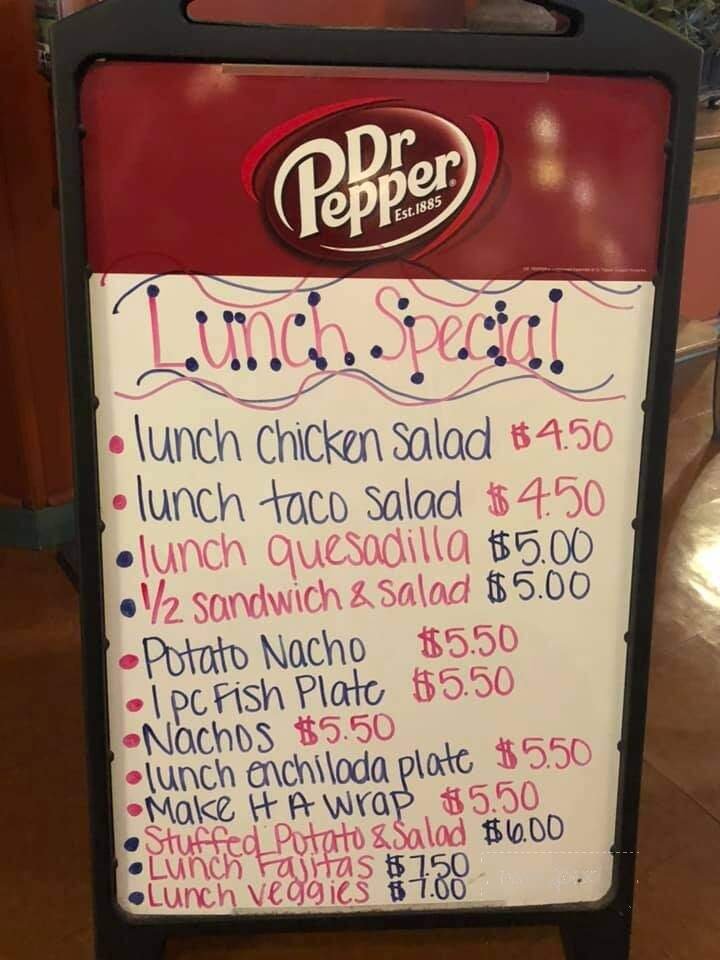 Dr
Pepper
Est.1885
Lunch Special
• lunch chicken salad $4.50
• lunch taco salad $4.50
• lunch quesadilla $5.00
• 1/2 sandwich & salad $5.00
• Potato Nacho $5.50
• 1 pc Fish Plate $5.50
• Nachos $5.50
• lunch enchilada plate $5.50
• Make it A Wrap $5.50
• Stuffed Potato & Salad $6.00
• Lunch Fajitas $7.50
• Lunch veggies $7.00